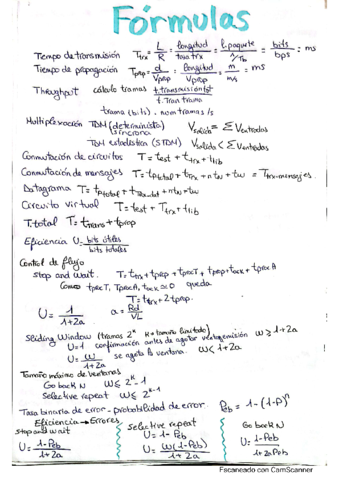 Fórmulas
Tiempo de transmisión T_trx = L/R = longitud/tasa trx = l.paquete/(1/Tb) = bits/bps = ms
Tiempo de propagación T_prop = d/Vprop = longitud/Vprop = m/m/s = ms
Throughput cálculo tramas t.transmisión tot/t.Tran trama
trama (bits), nom tramas/s
Multiplexación TDM (determinista) síncrona Vsalida = ΣVentradas
TDM estadística (STDM) Vsalida < ΣVentradas
Conmutación de circuitos T = test + t_trx + tlib
Conmutación de mensajes T = tp total + trx + n tw + tw = T trx-mensajes
Datagrama T = tp total + + n tw + tw
Circuito virtual T = test + T trx + tlib
T.total T = ttrans + tprop
Eficiencia U = bits útiles/bits totales
Control de flujo
stop and wait. T = ttrx + tprop + tprocT + tprop + tack + tprocA
Como tprocT, tprocA, tack ≃ 0 queda
T = ttrx + 2tprop.
U = 1/1+2a a = Rd/VL
Sliding Window (tramas 2^k k = tamaño limitado)
U = 1 confirmación antes de agotar ventana emisión w ≥ 1+2a
U = w/1+2a se agota la ventana. w < 1+2a
Tamaño máximo de ventanas
Go back N w ≤ 2^k - 1
Selective repeat w ≤ 2^k-1
Tasa binaria de error - probabilidad de error Peb = 1 - (1-P)^n
Eficiencia → Errores
stop and wait
U = 1-Peb/1+2a
selective repeat
U = 1-Peb
U = w(1-Peb)/1+2a
Go back N
U = 1-Peb/1+2aPeb
Escaneado con CamScanner